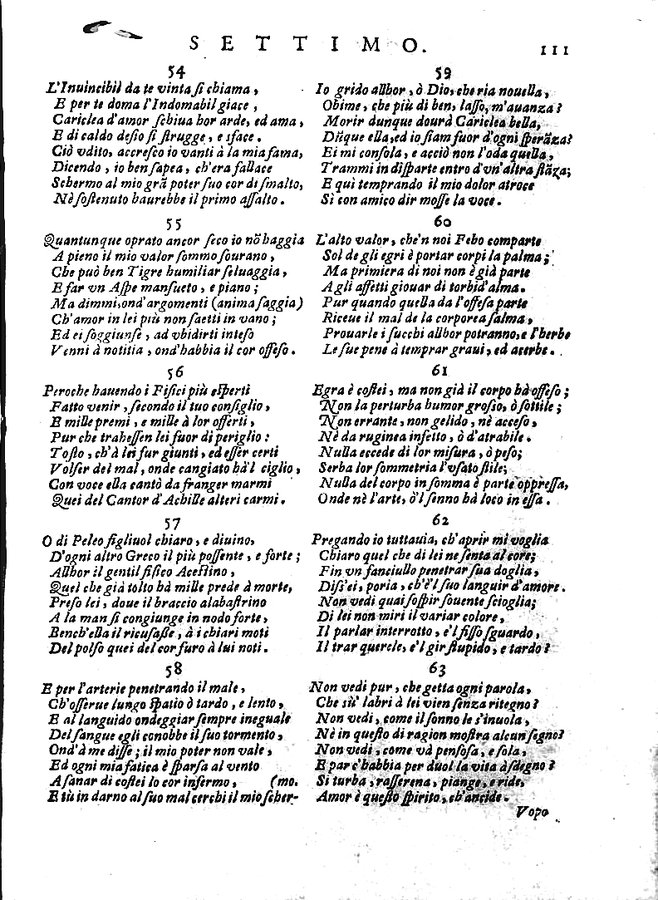 SETTIMO. 111
54
L'Inuincibil da te vinta si chiama,
E per te doma l'Indomabil giace,
Cariclea d'amor schiua hor arde, ed ama,
E di caldo desio si strugge, e sface.
Ciò vdito, accresco io vanti à la mia fama,
Dicendo, io ben sapea, ch'era fallace
Schermo al mio grã poter suo cor di smalto,
Nè sostenuto haurebbe il primo assalto.
55
Quantunque oprato ancor seco io nõ haggia
A pieno il mio valor sommo sourano,
Che può ben Tigre humiliar seluaggia,
E far vn Aspe mansueto, e piano;
Ma dimmi, ond'argomenti (anima saggia)
Ch'amor in lei più non saetti in vano;
Ed ei soggiunse, ad vbidirti inteso
Venni à notitia, ond'habbia il cor offeso.
56
Peroche hauendo i Fisici più esperti
Fatto venir, secondo il tuo consiglio,
E mille premi, e mille à lor offerti,
Pur che trahessen lei fuor di periglio:
Tosto, ch'à lei fur giunti, ed esser certi
Volser del mal, onde cangiato hà'l ciglio,
Con voce ella cantò da franger marmi
Quei del Cantor d'Achille alteri carmi.
57
O di Peleo figliuol chiaro, e diuino,
D'ogni altro Greco il più possente, e forte;
Allhor il gentil fisico Acestino,
Quel che già tolto hà mille prede à morte,
Preso lei, doue il braccio alabastrino
A la man si congiunge in nodo forte,
Bench'ella il ricusasse, à i chiari moti
Del polso quei del cor furo à lui noti.
58
E per l'arterie penetrando il male,
Ch'osserue lungo spatio ò tardo, e lento,
E al languido ondeggiar sempre ineguale
Del sangue egli conobbe il suo tormento,
Ond'à me disse; il mio poter non vale,
Ed ogni mia fatica è sparsa al vento
A sanar di costei lo cor infermo, (mo.
E tù in darno al suo mal cerchi il mio scher-
59
Io grido allhor, ò Dio, che ria nouella,
Obime, che più di ben, lasso, m'auanza?
Morir dunque dourà Cariclea bella,
Dũque ella, ed io siam fuor d'ogni sperãza?
Ei mi consola, e acciò non l'oda quella,
Trammi in disparte entro d'vn'altra stãza;
E qui temprando il mio dolor atroce
Sì con amico dir mosse la voce.
60
L'alto valor, che'n noi Febo comparte
Sol de gli egri è portar corpi la palma;
Ma primiera di noi non è già parte
A gli affetti giouar di torbid'alma.
Pur quando quella da l'offesa parte
Riceue il mal de la corporea salma,
Prouarle i succhi allhor potranno, e l'herbe
Le sue pene à temprar graui, ed acerbe.
61
Egra è costei, ma non già il corpo hà offeso;
Non la perturba humor grosso, ò sottile;
Non errante, non gelido, nè acceso,
Nè da ruginea infetto, ò d'atrabile.
Nulla eccede di lor misura, ò peso;
Serba lor sommetria l'vsato stile;
Nulla del corpo in somma è parte oppressa,
Onde nè l'arte, ò'l senno hà loco in essa.
62
Pregando io tuttauia, ch'aprir mi voglia
Chiaro quel che di lei ne senta al core;
Fin vn fanciullo penetrar sua doglia,
Diss'ei, poria, ch'è'l suo languir d'amore.
Non vedi quai sospir souente scioglia;
Di lei non miri il variar colore,
Il parlar interrotto, e'l fisso sguardo,
Il trar querele, e'l gir stupido, e tardo?
63
Non vedi pur, che getta ogni parola,
Che sù' labri à lei vien senza ritegno?
Non vedi, come il sonno le s'inuola,
Nè in questo di ragion mostra alcun segno?
Non vedi, come và pensosa, e sola,
E par c'habbia per duol la vita à sdegno?
Si turba, rasserena, piange, e ride,
Amor è questo spirito, ch'ancide.
Vopo